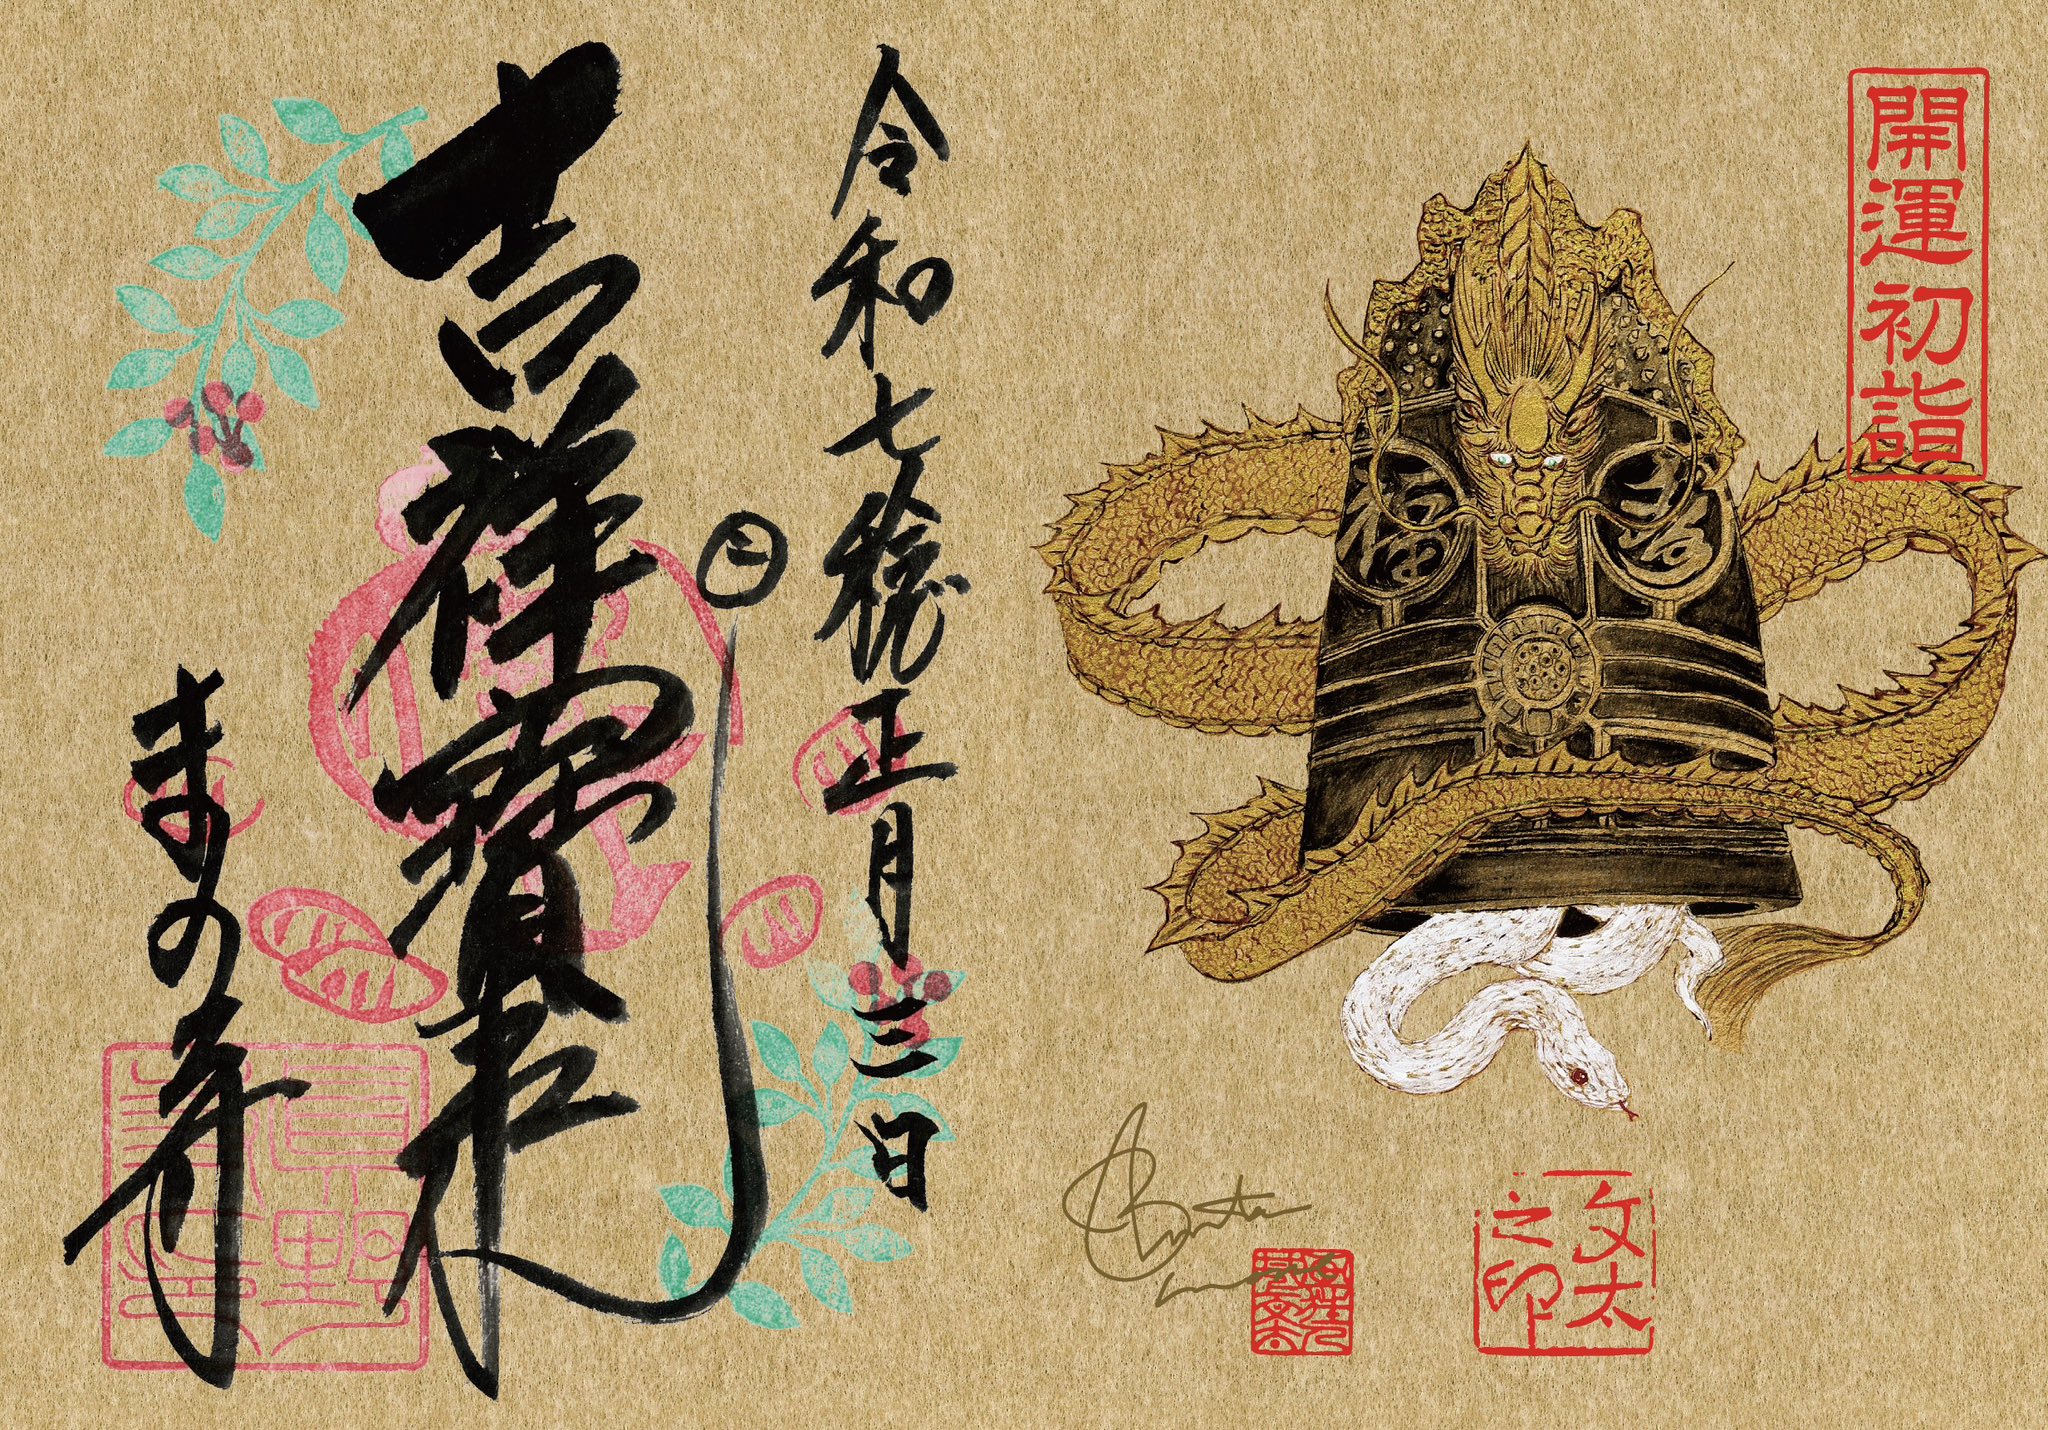 開運初詣
福
吉
文太
之印
令和七穐正月三日
㊁
吉祥寶来
まの寺